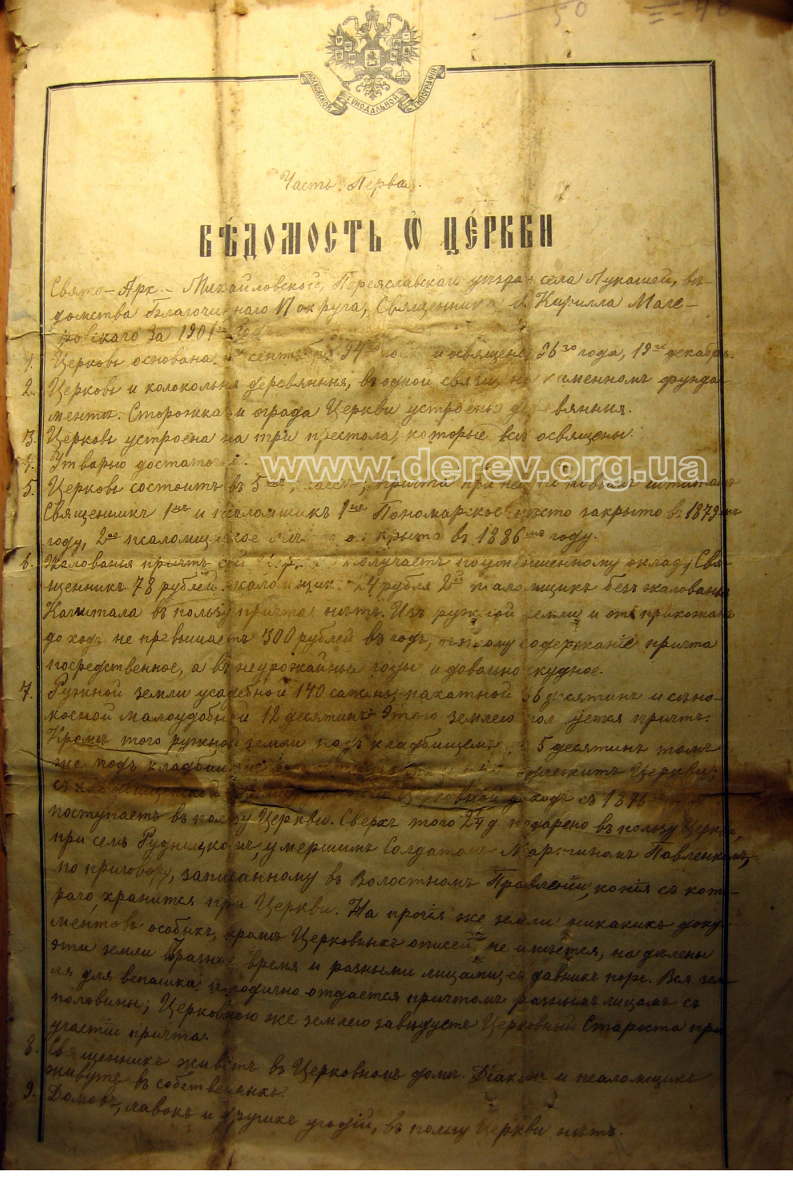 50
МОСКОВСКОЙ СѴНОДАЛЬНОЙ ТИПОГРАФІИ
Часть Первая.
ВѢДОМОСТЬ Ѡ ЦЕРКВИ
Свято-Арх.-Михайловской, Переяславскаго уѣзда, села Лукашей, вѣ-
домства Благочиннаго округа, Священника Кирилла Маге-
ровскаго За 1901 годъ
1. Церковь основана и освящена 36 го года, 19 декабря.
2. Церковь и колокольня деревянныя, въ одной связи, на каменномъ фунда-
ментѣ. Сторожка и ограда Церкви устроены деревянныя.
3. Церковь устроена на три престола, которые всѣ освящены.
4. Утварью достаточна.
www.derev.org.ua
5. Церковь состоитъ въ 5 классѣ, причта при ней по новымъ штатамъ
Священникъ 1 и псаломщикъ 1 Пономарское мѣсто закрыто въ 1879
году, 2 псаломщицкое закрыто въ 1886 году.
6. Жалованья причтъ сей получаетъ по уменьшенному окладу; Свя-
щенникъ 78 рублей, псаломщикъ 24 рубля 2 псаломщикъ безъ жалованья
Капитала въ пользу причта нѣтъ. Изъ ружной земли и отъ прихожанъ
доходъ не превышаетъ 300 рублей въ годъ, посему содержаніе причта
посредственное, а въ неурожайные годы и довольно скудное.
7. Ружной земли усадебной 140 сажень, пахатной 36 десятинъ и сѣно-
косной малоудобной 12 десятинъ. Этою землею пользуется причтъ.
Кромѣ того ружной земли подъ кладбищемъ 5 десятинъ томъ
же подъ кладбищемъ принадлежитъ Церкви;
доходъ съ 187
поступаетъ въ пользу Церкви. Сверхъ того 2 д. подарено въ пользу Церкви,
при селѣ Рудницкомъ, умершимъ Солдатомъ Мартиномъ Павленкомъ,
по приговору, записанному въ Волостномъ Правленіи, копія съ кото-
раго, хранится при Церкви. На прочія же земли никакихъ доку-
ментовъ особыхъ, кромѣ Церковныхъ описей, не имѣется, надѣлены
эти земли въ разное время и разными лицами, съ давнихъ поръ. Вся зем-
ля для вспашки ежегодно отдается причтомъ разнымъ лицамъ съ
половины; Церковною же землею завѣдуетъ Церковный Староста при
участіи причта.
8. Священникъ живетъ въ Церковномъ домѣ. Діаконъ и псаломщикъ
живутъ въ собственныхъ.
9. Домовъ, лавокъ и другихъ угодій, въ пользу Церкви нѣтъ.